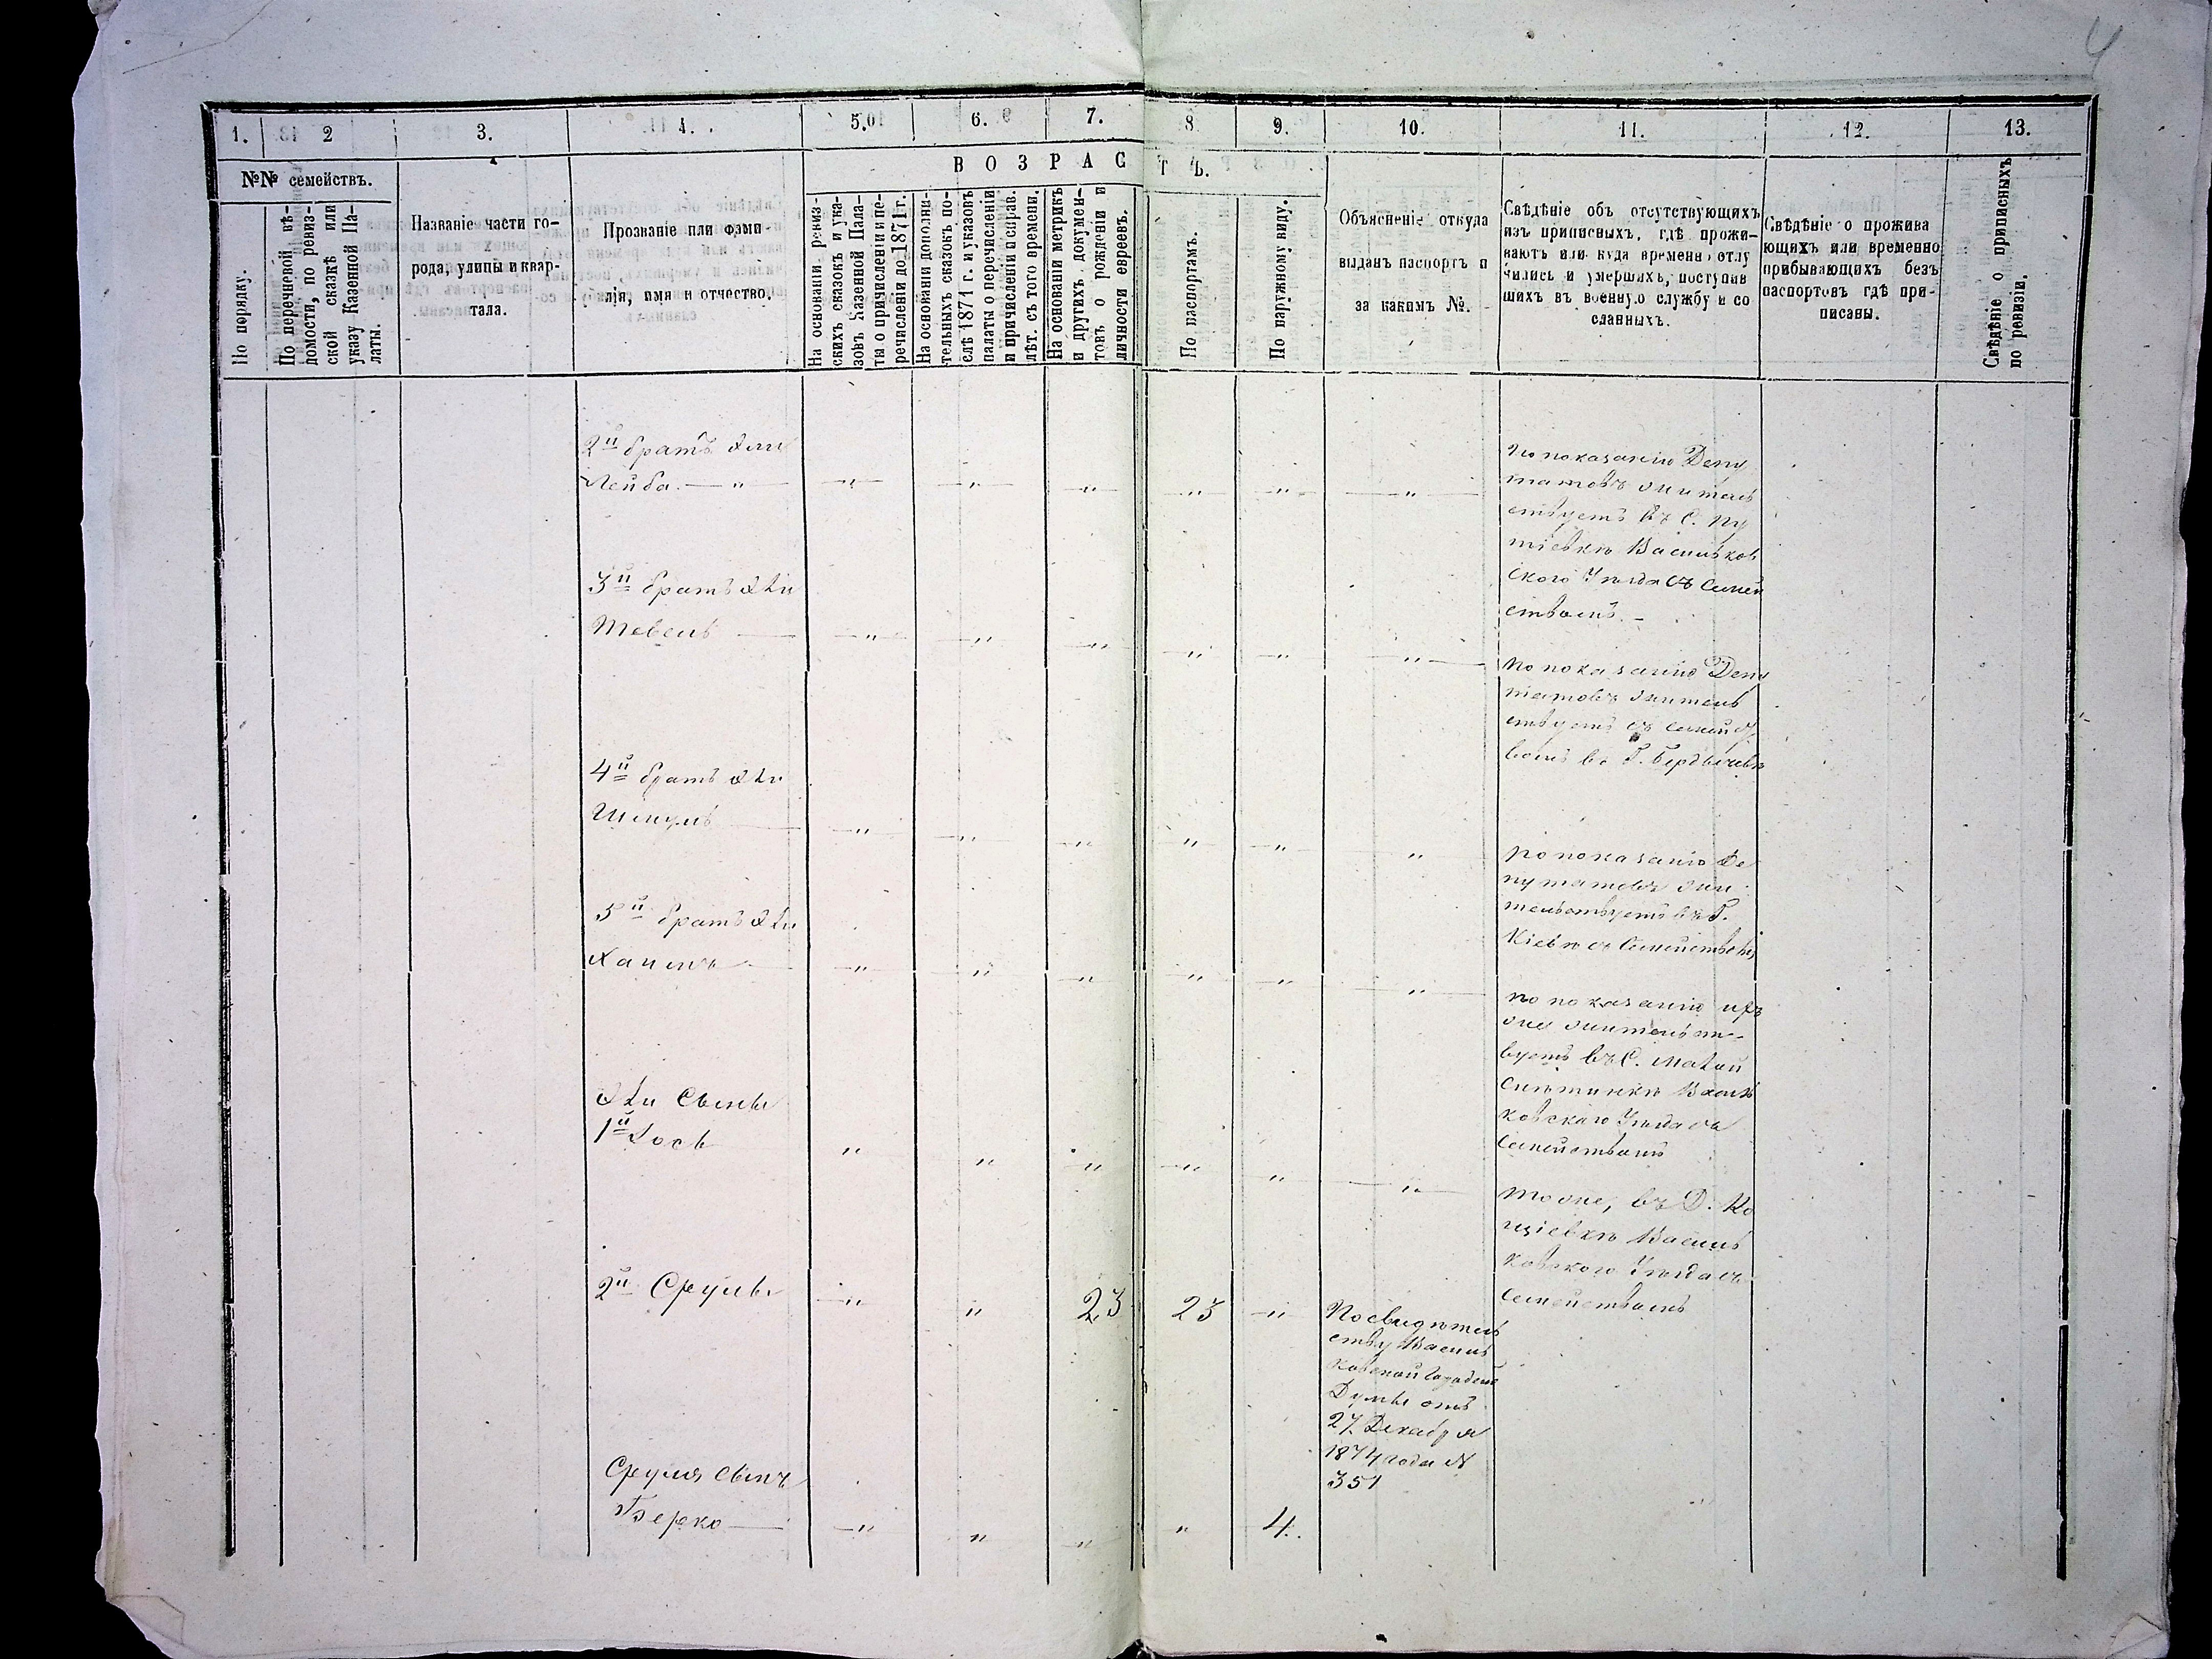 4
1.
2
3.
4.
5.
6.
7.
8.
9.
10.
11.
12.
13.
№№ семействъ.
По порядку.
По перечневой вѣ-
домости, по ревиз-
ской сказкѣ или
указу Казенной Па-
латы.
Названіе части го-
рода, улицы и квар-
тала.
Прозваніе или фами-
лія, имя и отчество.
ВОЗРАСТЪ.
На основаніи ревиз-
скихъ сказокъ и ука-
зовъ Казенной Пала-
ты о причисленіи и пе-
речисленіи до 1871 г.
На основаніи дополни-
тельныхъ сказокъ по-
слѣ 1871 г. и указовъ
палаты о перечисленіи
и причисленіи исправ.
лѣт. съ того времени.
На основаніи метрикъ
и другихъ докумен-
товъ о рожденіи и
личности евреевъ.
По паспортамъ.
По наружному виду.
Объясненіе откуда
выданъ паспортъ и
за какимъ №.
Свѣдѣніе объ отсутствующихъ
изъ приписныхъ, гдѣ прожи-
ваютъ или куда временно отлу
чились и умершихъ, поступив
шихъ въ военную службу и со
сланныхъ.
Свѣдѣніе о прожива
ющихъ или временно
прибывающихъ безъ
паспортовъ гдѣ при-
писаны.
Свѣдѣніе о приписныхъ
по ревизіи.
2й братъ
Лейба — " — " — " — " — " — " — "
по показанію Депу
татовъ житель
ствуетъ въ С. Пу
тіевкѣ Васильков
ского Уѣзда съ Семей
ствомъ. –
3й братъ
Тевель — " — " — " — " — " — "
по показанію Депу
татовъ житель
ствуетъ съ семейст
вомъ въ Г. Бердичевѣ
4й братъ
Шмуль — " — " — " " " "
по показанію Де
путатовъ жи
тельствуетъ въ Г.
Кіевѣ съ Семействомъ
5й братъ
Хаимъ — " " " " " "
по показанію ихъ
же жительст-
вуетъ въ С. Малой
Снѣтинкѣ Василь
ковскаго Уѣзда съ
Семействомъ
Сыны
1й Іось " " " " " "
тоже, въ Д. Ко
щіевкѣ Василь
ковского Уѣзда съ
Семействомъ
2й Сруль " " 23 23 "
По свидѣтель
ству Василь
ковской Городской
Думы отъ
27 Декабря
1874 года №
351
Сруля Сынъ
Берко — " " " " 4.